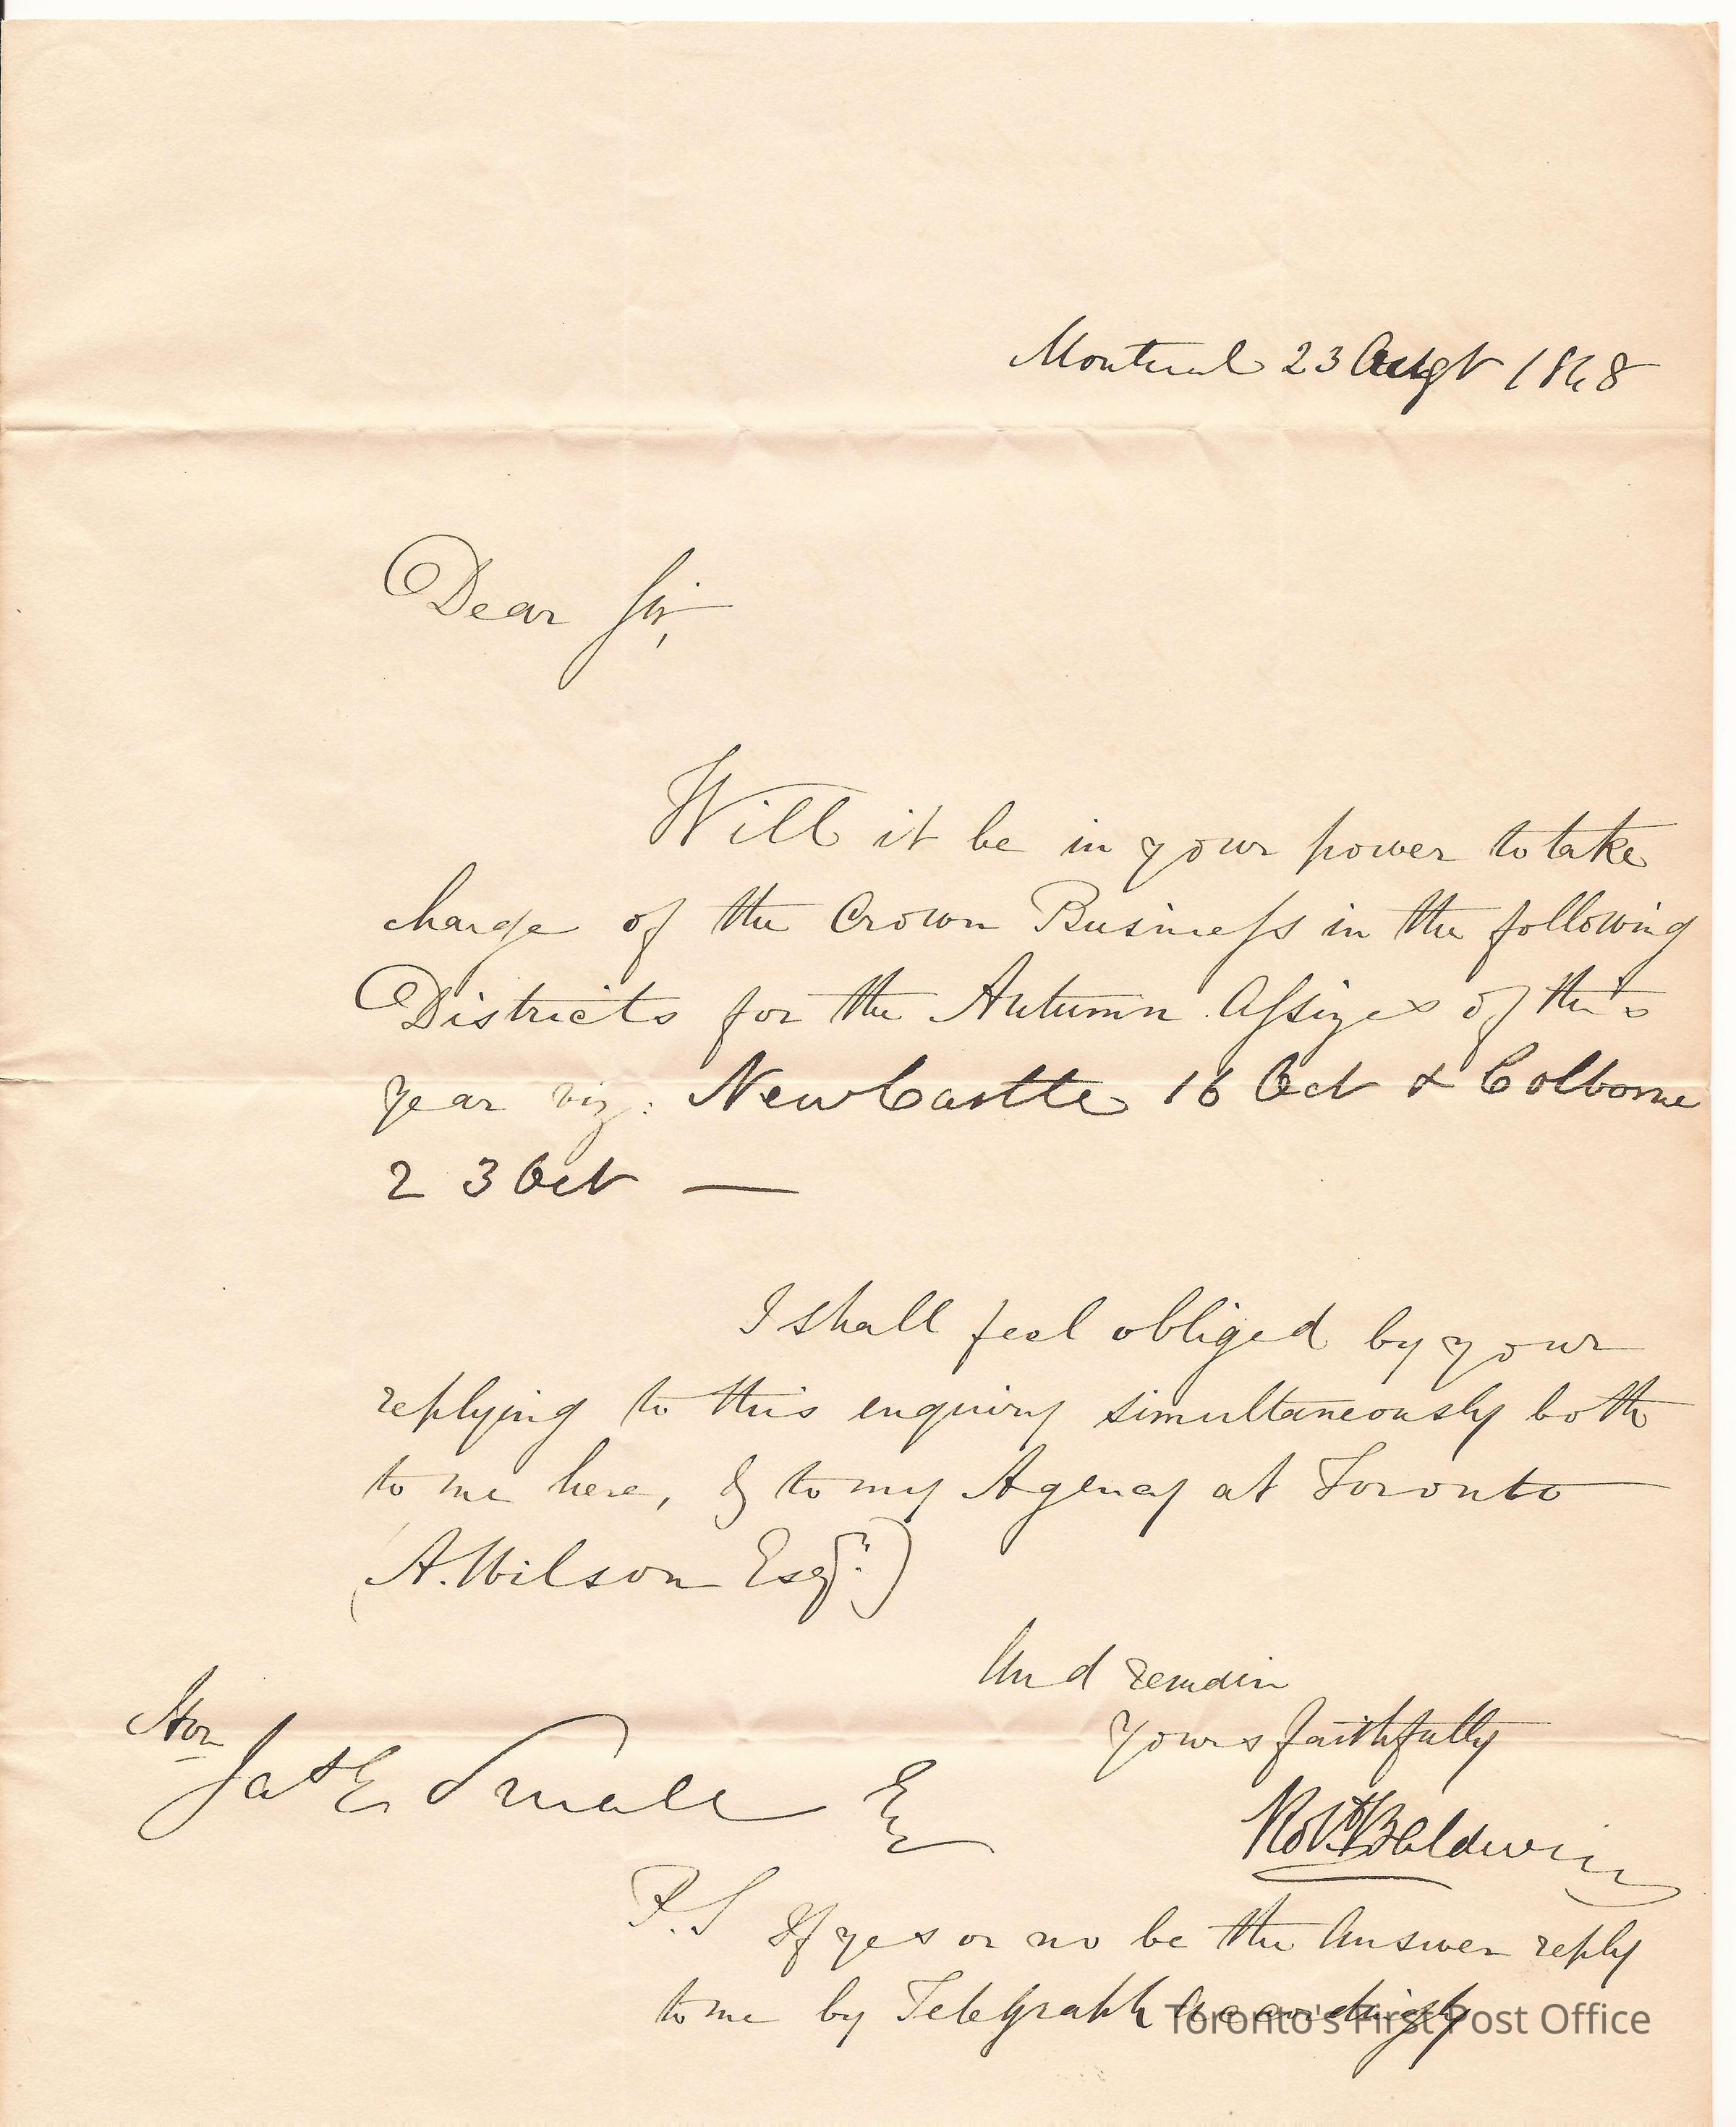 Montreal 23 Augt 1848
Dear Sir,
Will it be in your power to take
charge of the Crown Business in the following
Districts for the Autumn Assizes of this
year viz: NewCastle 16 Oct & Colborne
23 Oct —
I shall feel obliged by your
replying to this enquiry simultaneously both
to me here, & to my Agency at Toronto
(A. Wilson Esqr.)
And remain
yours faithfully
Hon
Jas E Small Esq
Robt Baldwin
P.S If yes or no be the Answer reply
to me by Telegraph accordingly
Toronto's First Post Office